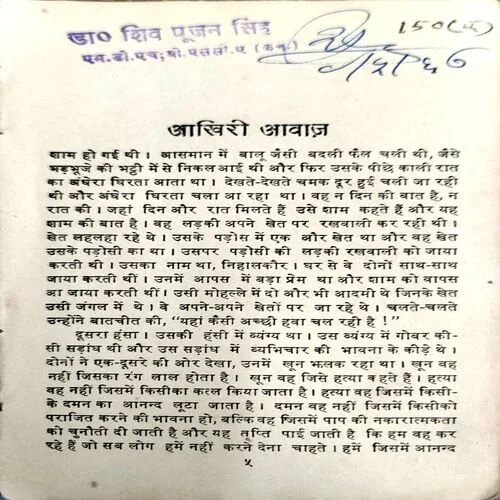 डा० शिव पूजन सिंह
एम.डी.एच; बी.एससी.ए (कन.)
150(फ)
आखिरी आवाज़
शाम हो गई थी। आसमान में बालू जैसी बदली फैल चली थी, जैसे
भड़भूजे की भट्ठी में से निकल आई थी और फिर उसके पीछे काली रात
का अंधेरा घिरता आता था। देखते-देखते चमक दूर हुई चली जा रही
थी और अंधेरा घिरता चला आ रहा था। वह न दिन की बात है, न
रात की। जहां दिन और रात मिलते हैं उसे शाम कहते हैं और यह
शाम की बात है। वह लड़की अपने खेत पर रखवाली कर रही थी।
खेत लहलहा रहे थे। उसके पड़ोस में एक और खेत था और वह खेत
उसके पड़ोसी का था। उसपर पड़ोसी की लड़की रखवाली को जाया
करती थी। उसका नाम था, निहालकौर। घर से वे दोनों साथ-साथ
जाया करती थीं। उनमें आपस में बड़ा प्रेम था और शाम को वापस
आ जाया करती थीं। उसी मोहल्ले में दो और भी आदमी थे जिनके खेत
उसी जंगल में थे। वे अपने-अपने खेतों पर जा रहे थे। चलते-चलते
उन्होंने बातचीत की, "यहां कैसी अच्छी हवा चल रही है!"
दूसरा हंसा। उसकी हंसी में व्यंग्य था। उस व्यंग्य में गोबर की-
सी सड़ांध थी और उस सड़ांध में व्यभिचार की भावना के कीड़े थे।
दोनों ने एक-दूसरे की ओर देखा, उनमें खून झलक रहा था। खून वह
नहीं जिसका रंग लाल होता है। खून वह जिसे हत्या कहते हैं। हत्या
वह नहीं जिसमें किसीका कत्ल किया जाता है। हत्या वह जिसमें किसी-
के दमन का आनंद लूटा जाता है। दमन वह नहीं जिसमें किसीको
पराजित करने की भावना हो, बल्कि वह जिसमें पाप की नकारात्मकता
को चुनौती दी जाती है और यह तृप्ति पाई जाती है कि हम वह कर
रहे हैं जो सब लोग हमें नहीं करने देना चाहते। हमें जिसमें आनन्द
५